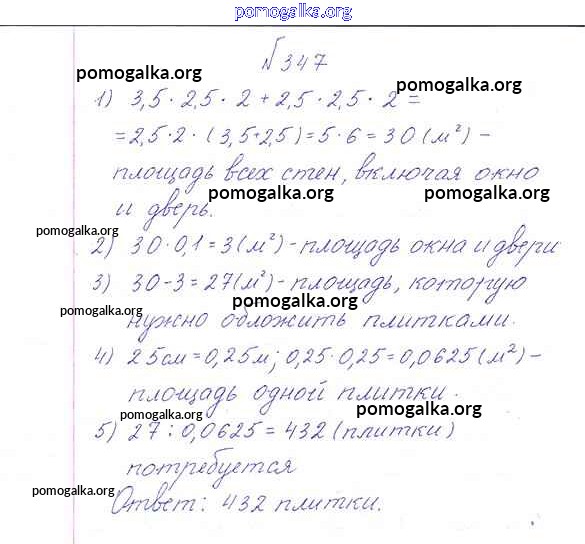 pomogalka.org
№ 347
pomogalka.org
pomogalka.org
1) 3,5 · 2,5 · 2 + 2,5 · 2,5 · 2 =
= 2,5 · 2 · (3,5+2,5) = 5 · 6 = 30 (м²) –
площадь всех стен, включая окно
pomogalka.org
pomogalka.org
и дверь.
pomogalka.org
2) 30 · 0,1 = 3 (м²) – площадь окна и двери
3) 30 – 3 = 27 (м²) – площадь, которую
pomogalka.org
pomogalka.org
нужно обложить плитками.
4) 25 см = 0,25 м; 0,25 · 0,25 = 0,0625 (м²) –
площадь одной плитки.
pomogalka.org
pomogalka.org
5) 27 : 0,0625 = 432 (плитки)
потребуется
pomogalka.org
Ответ: 432 плитки.
pomogalka.org